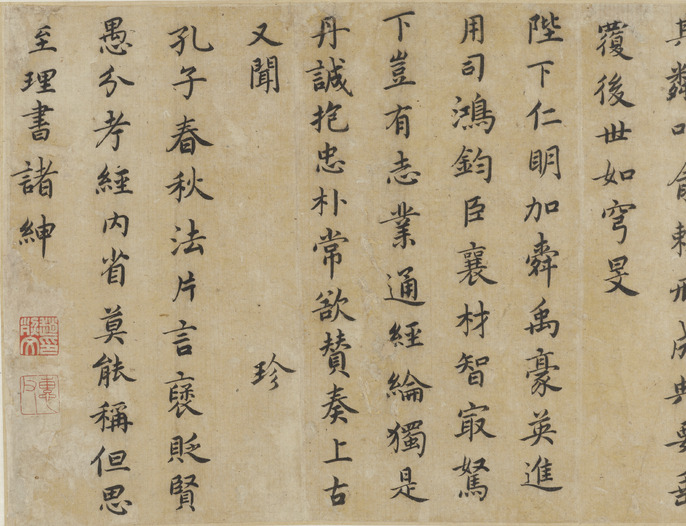 成典
覆後世如穹旻
陛下仁明加舜禹豪英進
用司鴻鈞臣襄材智㝡駑
下豈有志業通經綸獨是
丹誠抱忠朴常欲贊奏上古
珍
又聞
孔子春秋法片言褒貶賢
愚分考經內省莫能稱但思
至理書諸紳